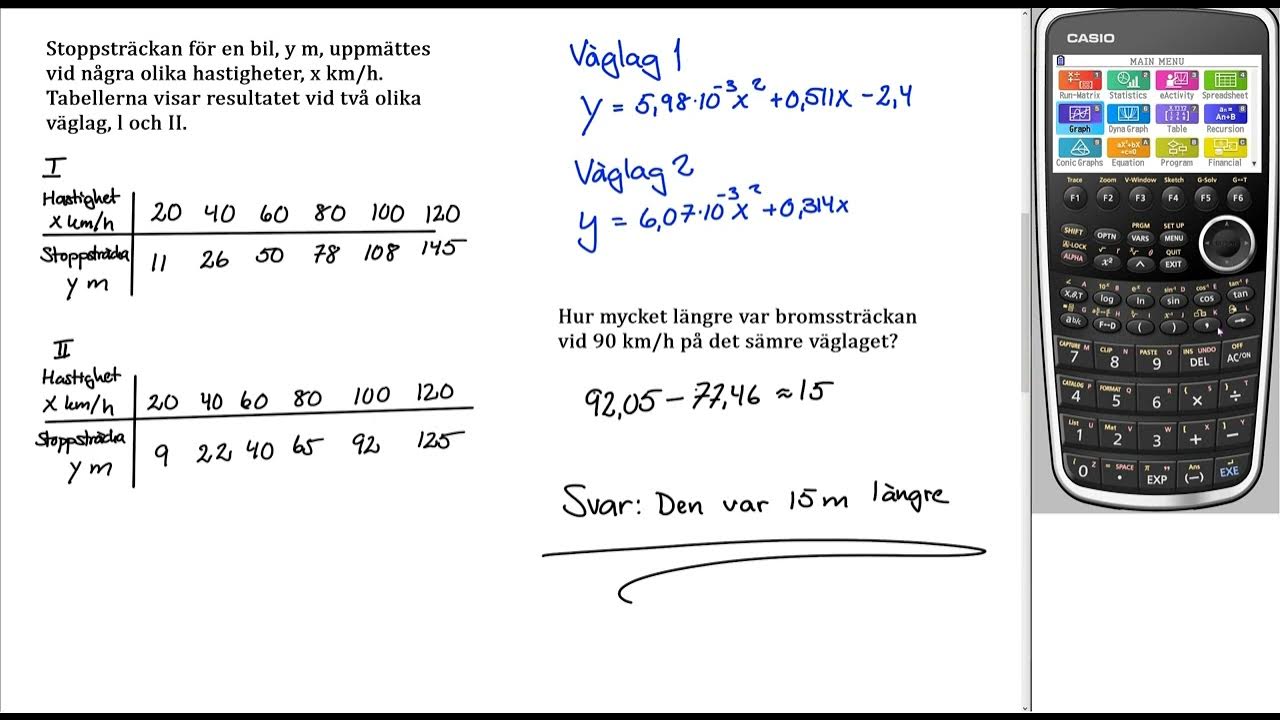 Stoppsträckan för en bil, y m, uppmättes
vid några olika hastigheter, x km/h.
Tabellerna visar resultatet vid två olika
väglag, l och II.
I
Hastighet
x km/h 20 40 60 80 100 120
Stoppsträcka
y m 11 26 50 78 108 145
II
Hastighet
x km/h 20 40 60 80 100 120
Stoppsträcka
y m 9 22 40 65 92 125
Väglag 1
y = 5,98·10⁻³x² + 0,511x − 2,4
Väglag 2
y = 6,07·10⁻³x² + 0,314x
Hur mycket längre var bromssträckan
vid 90 km/h på det sämre väglaget?
92,05 − 77,46 ≈ 15
Svar: Den var 15 m längre
CASIO
MAIN MENU
Run-Matrix Statistics eActivity Spreadsheet
Graph Dyna Graph Table Recursion
Conic Graphs Equation Program Financial
Trace Zoom V-Window Sketch G-Solv G↔T
F1 F2 F3 F4 F5 F6
PRGM SET UP
SHIFT OPTN VARS MENU
A-LOCK QUIT
ALPHA x² ^ EXIT
X,θ,T log ln sin cos tan
a b/c F↔D ( ) , →
CAPTURE M CLIP N PASTE O INS UNDO OFF
7 8 9 DEL AC/ON
CATALOG P FORMAT Q R { S } T
4 5 6 × ÷
List U Mat V W [ X ] Y
1 2 3 + −
i Z = SPACE π " Ans
0 . EXP (−) EXE